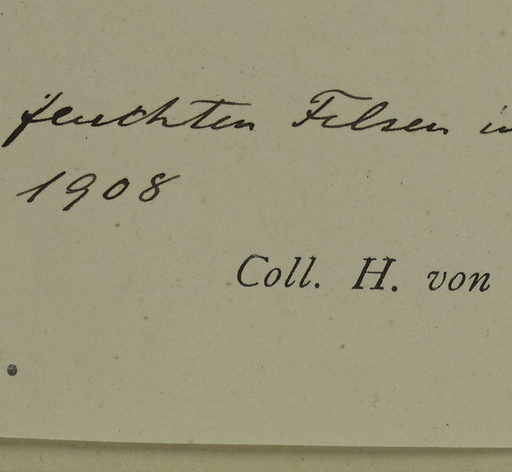 feuchten Felsen in
1908
Coll. H. von